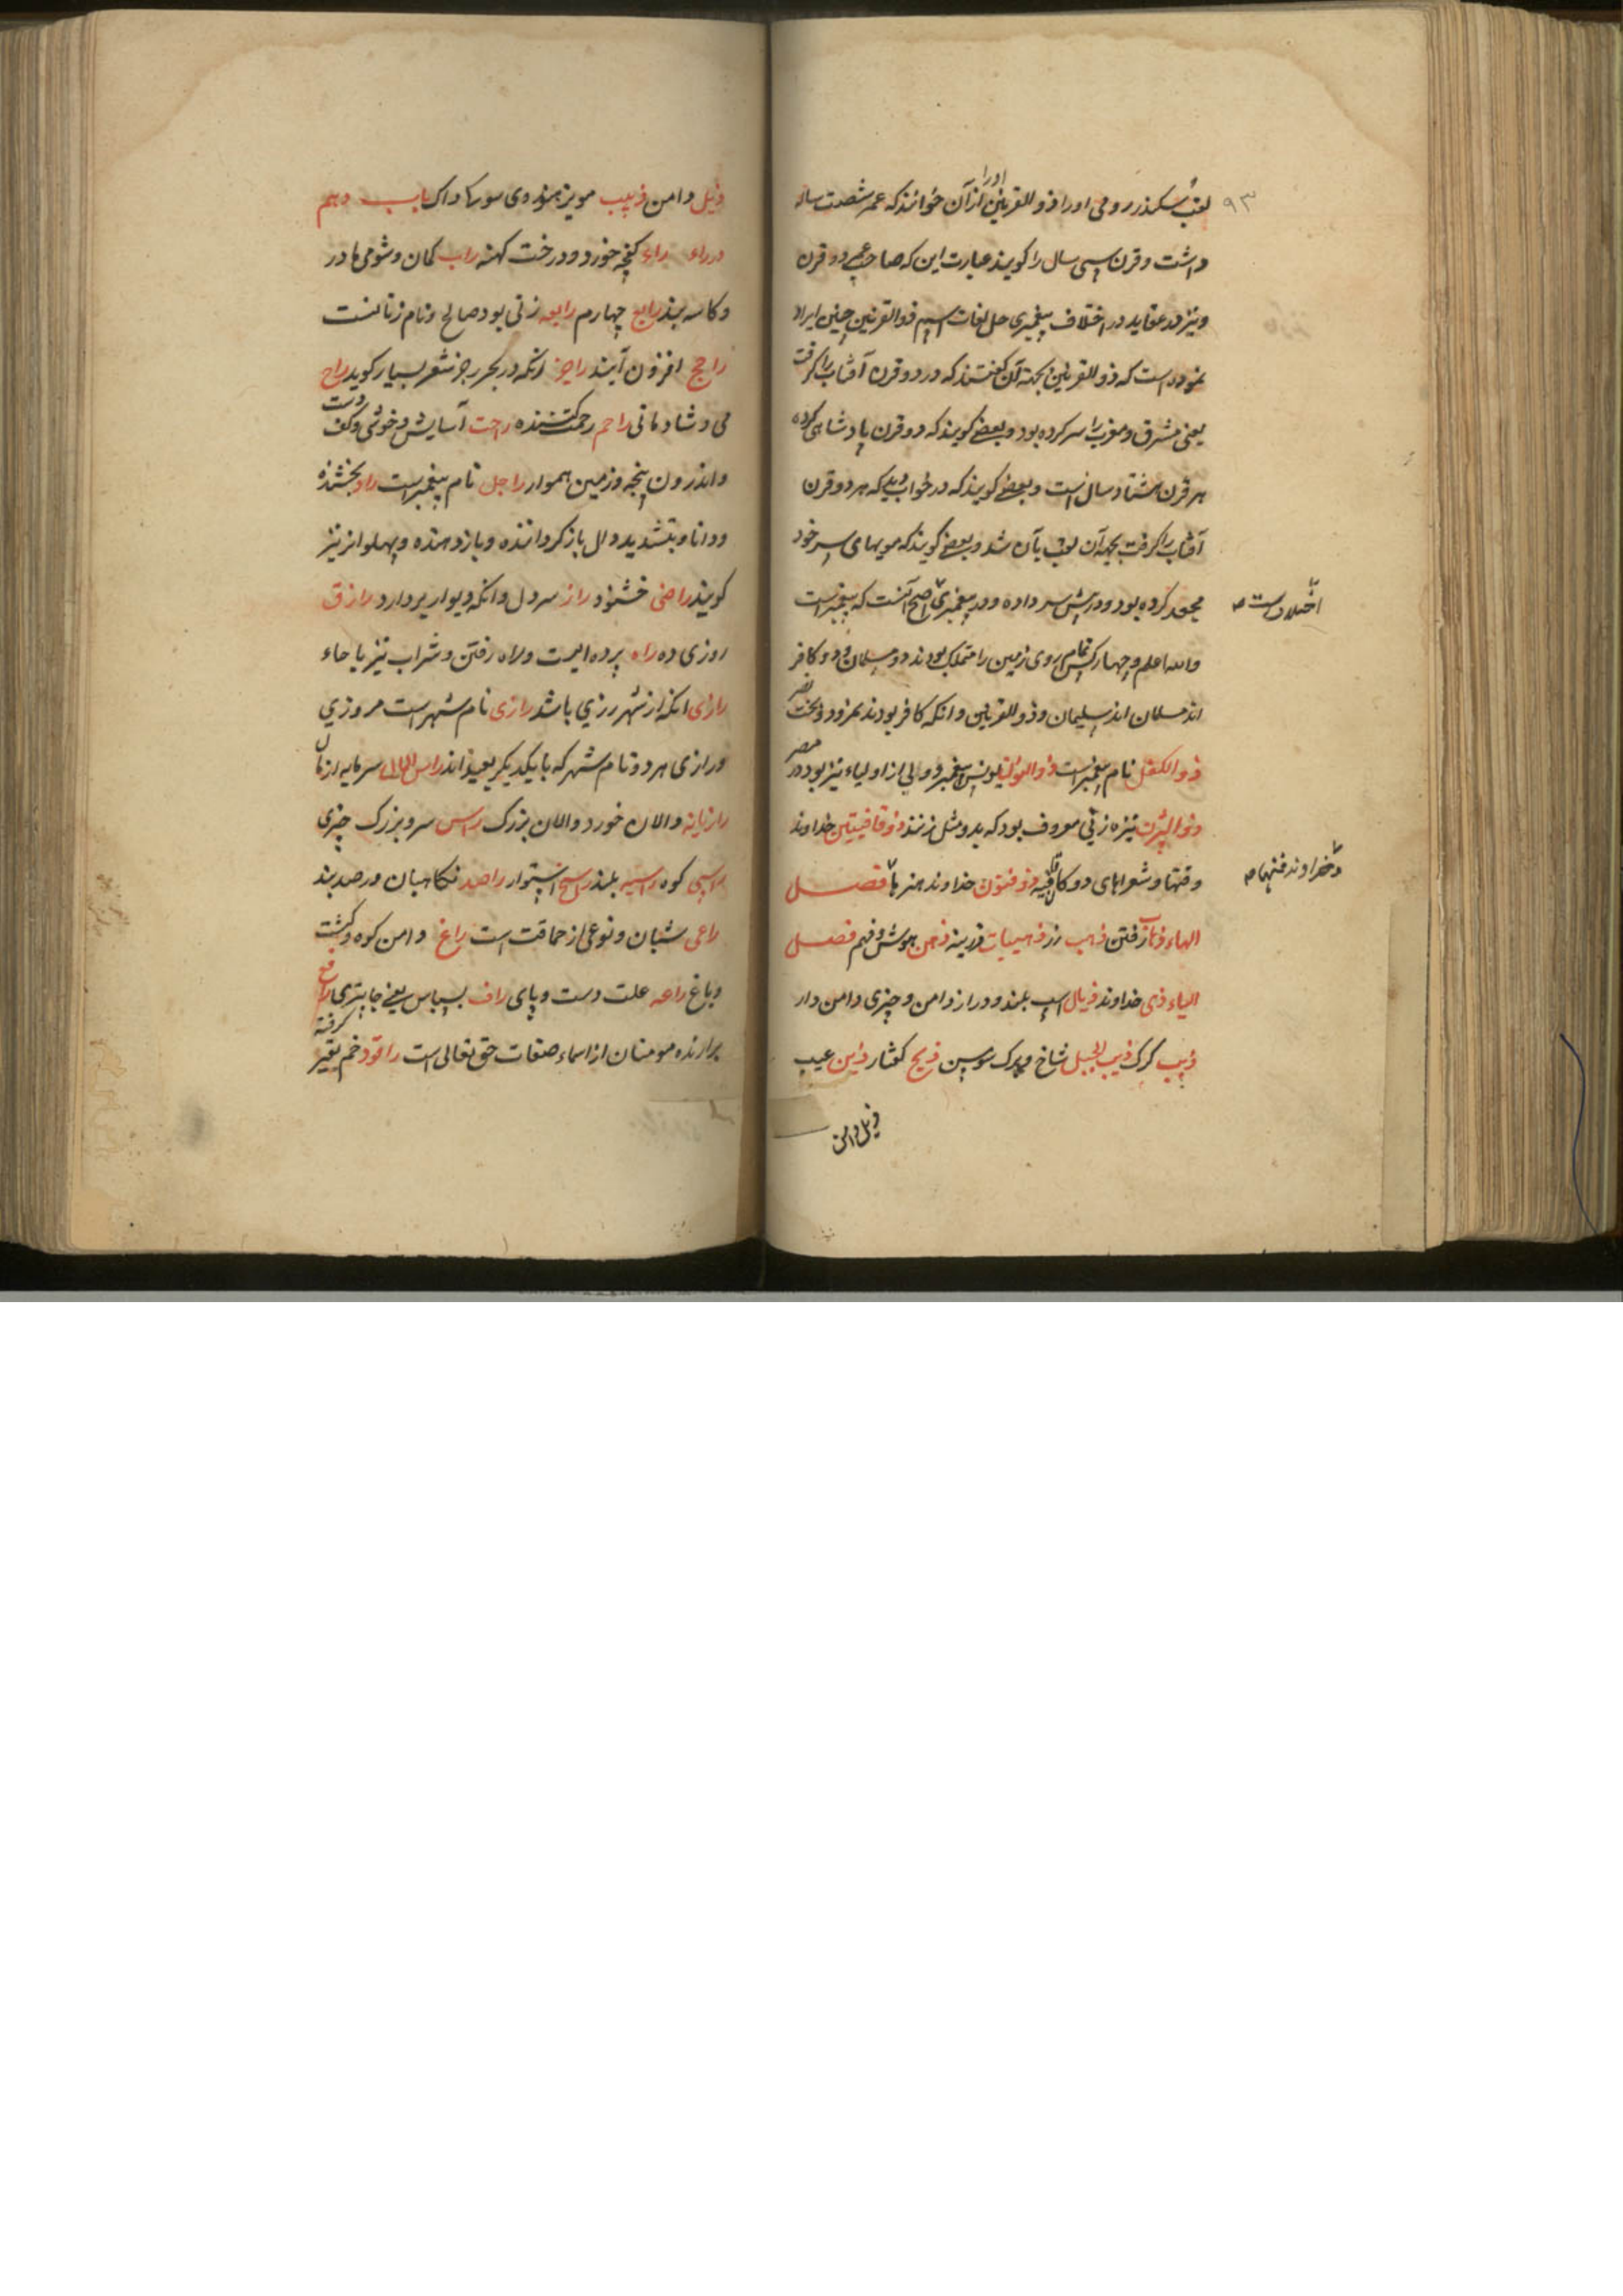 ۹۳
لقب سکندر رومی اورا ذو القرنین ازآن خوانند که عمر شصت ساله
داشت و قرن سی سال را کویند عبارت این که صاحب دو قرن
ونیز در عقاید در اختلاف پیغمبری ذو القرنین چنین ایراد
نموده است که ذو القرنین بجهة آن کفتند که در دو قرن آفتاب را کرفت
یعنی مشرق و مغرب را سر کرده بود و بعضے کویند که دو قرن پادشاهی کرده
هر قرن هشتاد سال است و بعضے کویند که در خواب دید که هر دو قرن
آفتاب را کرفت بجهة آن لقب بآن شد و بعضے کویند که مویهای سر خود
کرده بود و سر داده و در پیغمبری اصح آنست که پیغمبر است
اختلاف است
والله اعلم و چهار کس تمام روی زمین را متملک بودند دو مسلمان و دو کافر
اند مسلمان اند سلیمان و ذو القرنین و انکه کافر بودند نمرود و بخت نصر
ذو الکفل نام پیغمبر است یونس پیغمبر و ولی از اولیاء نیز بود در مصر
نیزه زنی معروف بود که بدو مثل زنند ذو قافیتین خداوند
وقتها و شعرهای دوکان قافیه ذو فنون خداوند هنرها فصل
و خداوند فتنها
الهاء ذهاب رفتن ذهب زر ذهبیات زرینه ذهن هوش و فهم فصل
الیاء ذی خداوند ذیال اسب بلند و دراز دامن و چیزی دامن دار
ذیب کرک ذیب الجبل شاخ و برک سوسن ذیخ کفتار ذین عیب
ذیل دامن
ذیل دامن ذبیب مویز باب دهم
در راء راء کفچه خورد و درخت کهنه راب کمان و شوی مادر
و کاسه بند رابع چهارم رابعه زنی بود صالح و نام زنانست
راجح افزون آیند راجز انکه در بحر رجز شعر بسیار کوید راح
می و شادمانی راحم رحمت کننده راحت آسایش و خوشی و کف دست
و اندرون پنجه و زمین هموار راحل نام پیغمبر است راد بخشنده
و دانا و بتشدید دال باز کرداننده و باز دهنده و پهلوان نیز
کویند راضی خشنود راز سر دل و انکه دیوار بردارد رازق
روزی ده راه پرده ایست و راه رفتن و شراب نیز با حاء
رازی انکه از شهر رزی باشد رازی نام شهر است مروزی
و رازی هر دو نام شهر که با یکدیکر بعید اند راس المال سرمایه از مال
رازیانه والان خورد و والان بزرک راس سر و بزرک چیزی
راسی کوه راسیه بلند راسخ استوار راصد نکاهبان و رصد بند
راعی شبان و نوعی از حماقت است راغ دامن کوه و کشت
و باغ راعه علت دست و پای راف بسباس یعنی جابتری رافع
برارنده مومنان از اسماء صفات حق تعالی است راقود خم بقیر کرفته